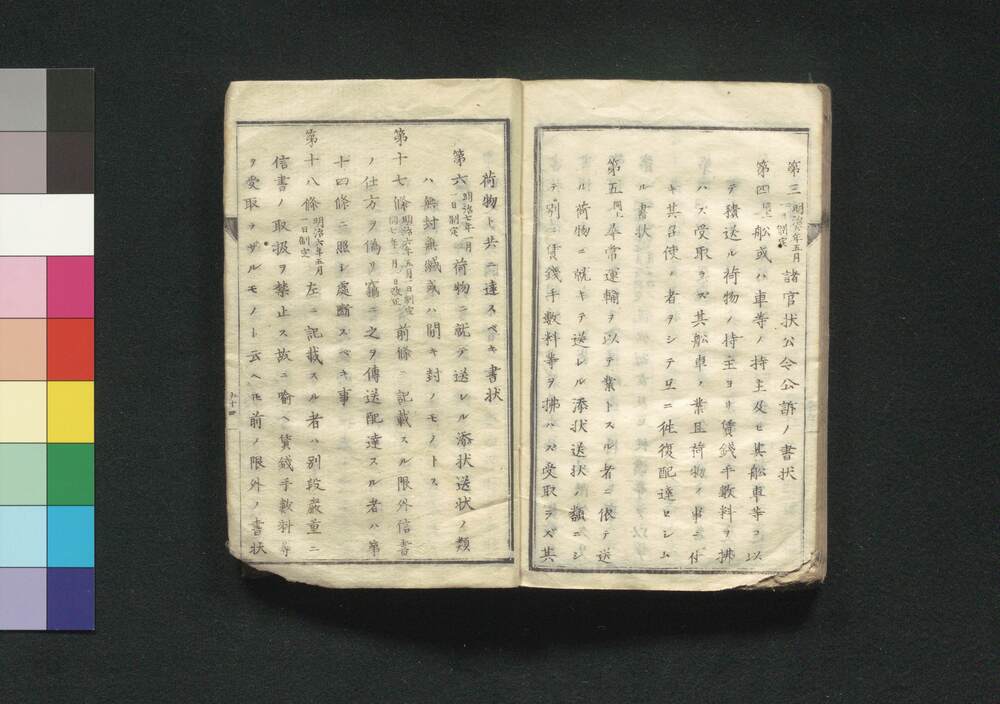 第三 明治六年五月一日制定 諸官状公令公訴ノ書状
第四 同上 船或ハ車等ノ持主及ヒ其船車等ヲ以
テ積送ル荷物ノ持主ヨリ賃錢手數料ヲ拂
ハズ受取ラズ其船車ノ業且荷物ノ事ニ付
キ其召使ノ者ヲシテ互ニ往復配達セシム
ル書状
第五 同上 尋常運輸ヲ以テ業トスル者ニ依テ送
ル荷物ニ就キテ送レル添状送状ノ類ニシ
テ別ニ賃錢手數料等ヲ拂ハズ受取ラズ其
荷物ト共ニ達スベキ書状
第六 明治七年一月一日制定 荷物ニ就テ送レル添状送状ノ類
ハ無封無緘或ハ開キ封ノモノトス
第十七條 明治六年五月一日制定 同七年一月一日改正 前條ニ記載スル限外信書
ノ仕方ヲ偽リ竊ニ之ヲ傳送配達スル者ハ第
十四條ニ照シ處斷スベキ事
第十八條 明治六年五月一日制定 左ニ記載スル者ハ別段嚴重ニ
信書ノ取扱ヲ禁止ス故ニ喩ヘ賃錢手數料等
ヲ受取ラザルモノト云ヘ𪜈前ノ限外ノ書状
九十四